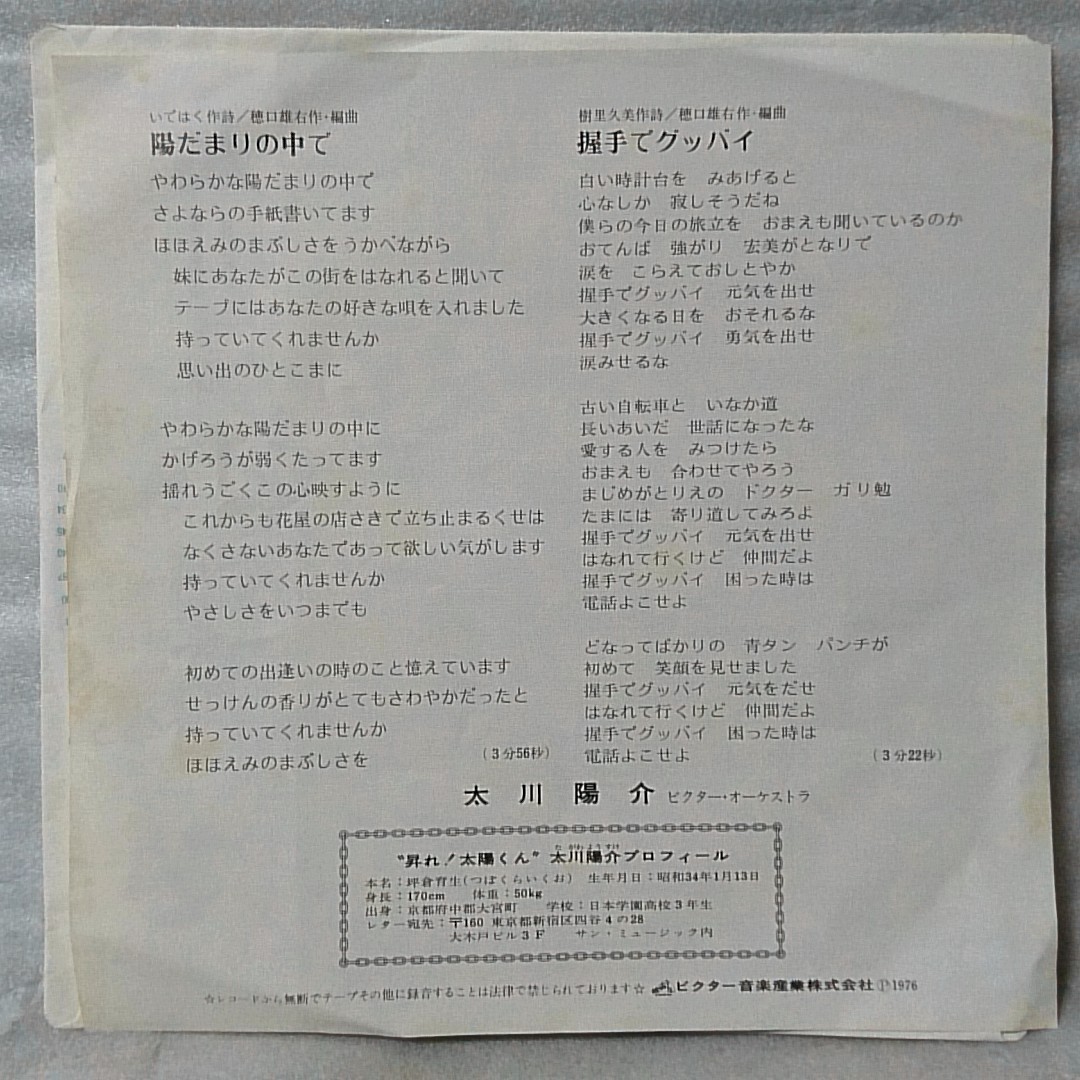 いではく作詩／穂口雄右作・編曲
陽だまりの中で
やわらかな陽だまりの中で
さよならの手紙書いてます
ほほえみのまぶしさをうかべながら
妹にあなたがこの街をはなれると聞いて
テープにはあなたの好きな唄を入れました
持っていてくれませんか
思い出のひとこまに
やわらかな陽だまりの中に
かげろうが弱くたってます
揺れうごくこの心映すように
これからも花屋の店さきで立ち止まるくせは
なくさないあなたであって欲しい気がします
持っていてくれませんか
やさしさをいつまでも
初めての出逢いの時のこと憶えています
せっけんの香りがとてもさわやかだったと
持っていてくれませんか
ほほえみのまぶしさを
(3分56秒)
樹里久美作詩／穂口雄右作・編曲
握手でグッバイ
白い時計台を　みあげると
心なしか　寂しそうだね
僕らの今日の旅立を　おまえも聞いているのか
おてんば　強がり　宏美がとなりで
涙を　こらえておしとやか
握手でグッバイ　元気を出せ
大きくなる日を　おそれるな
握手でグッバイ　勇気を出せ
涙みせるな
古い自転車と　いなか道
長いあいだ　世話になったな
愛する人を　みつけたら
おまえも　合わせてやろう
まじめがとりえの　ドクター　ガリ勉
たまには　寄り道してみろよ
握手でグッバイ　元気を出せ
はなれて行くけど　仲間だよ
握手でグッバイ　困った時は
電話よこせよ
どなってばかりの　青タン　パンチが
初めて　笑顔を見せました
握手でグッバイ　元気をだせ
はなれて行くけど　仲間だよ
握手でグッバイ　困った時は
電話よこせよ
(3分22秒)
太川陽介 ビクター・オーケストラ
“昇れ！太陽くん”太川陽介プロフィール
本名：坪倉育生(つぼくらいくお)　生年月日：昭和34年1月13日
身長：170cm　体重：50kg
出身：京都府中郡大宮町　学校：日本学園高校3年生
レター宛先：〒160 東京都新宿区四谷4の28
大木戸ビル3F　サン・ミュージック内
☆レコードから無断でテープその他に録音することは法律で禁じられております☆ ビクター音楽産業株式会社Ⓟ1976